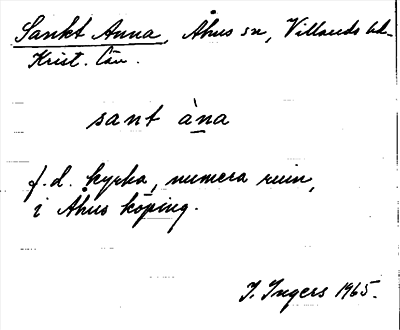 Sankt Anna, Åhus sn, Villands hd
Krist. län.
sant àna
f.d. kyrka, numera ruin,
i Åhus köping.
I. Ingers 1965.